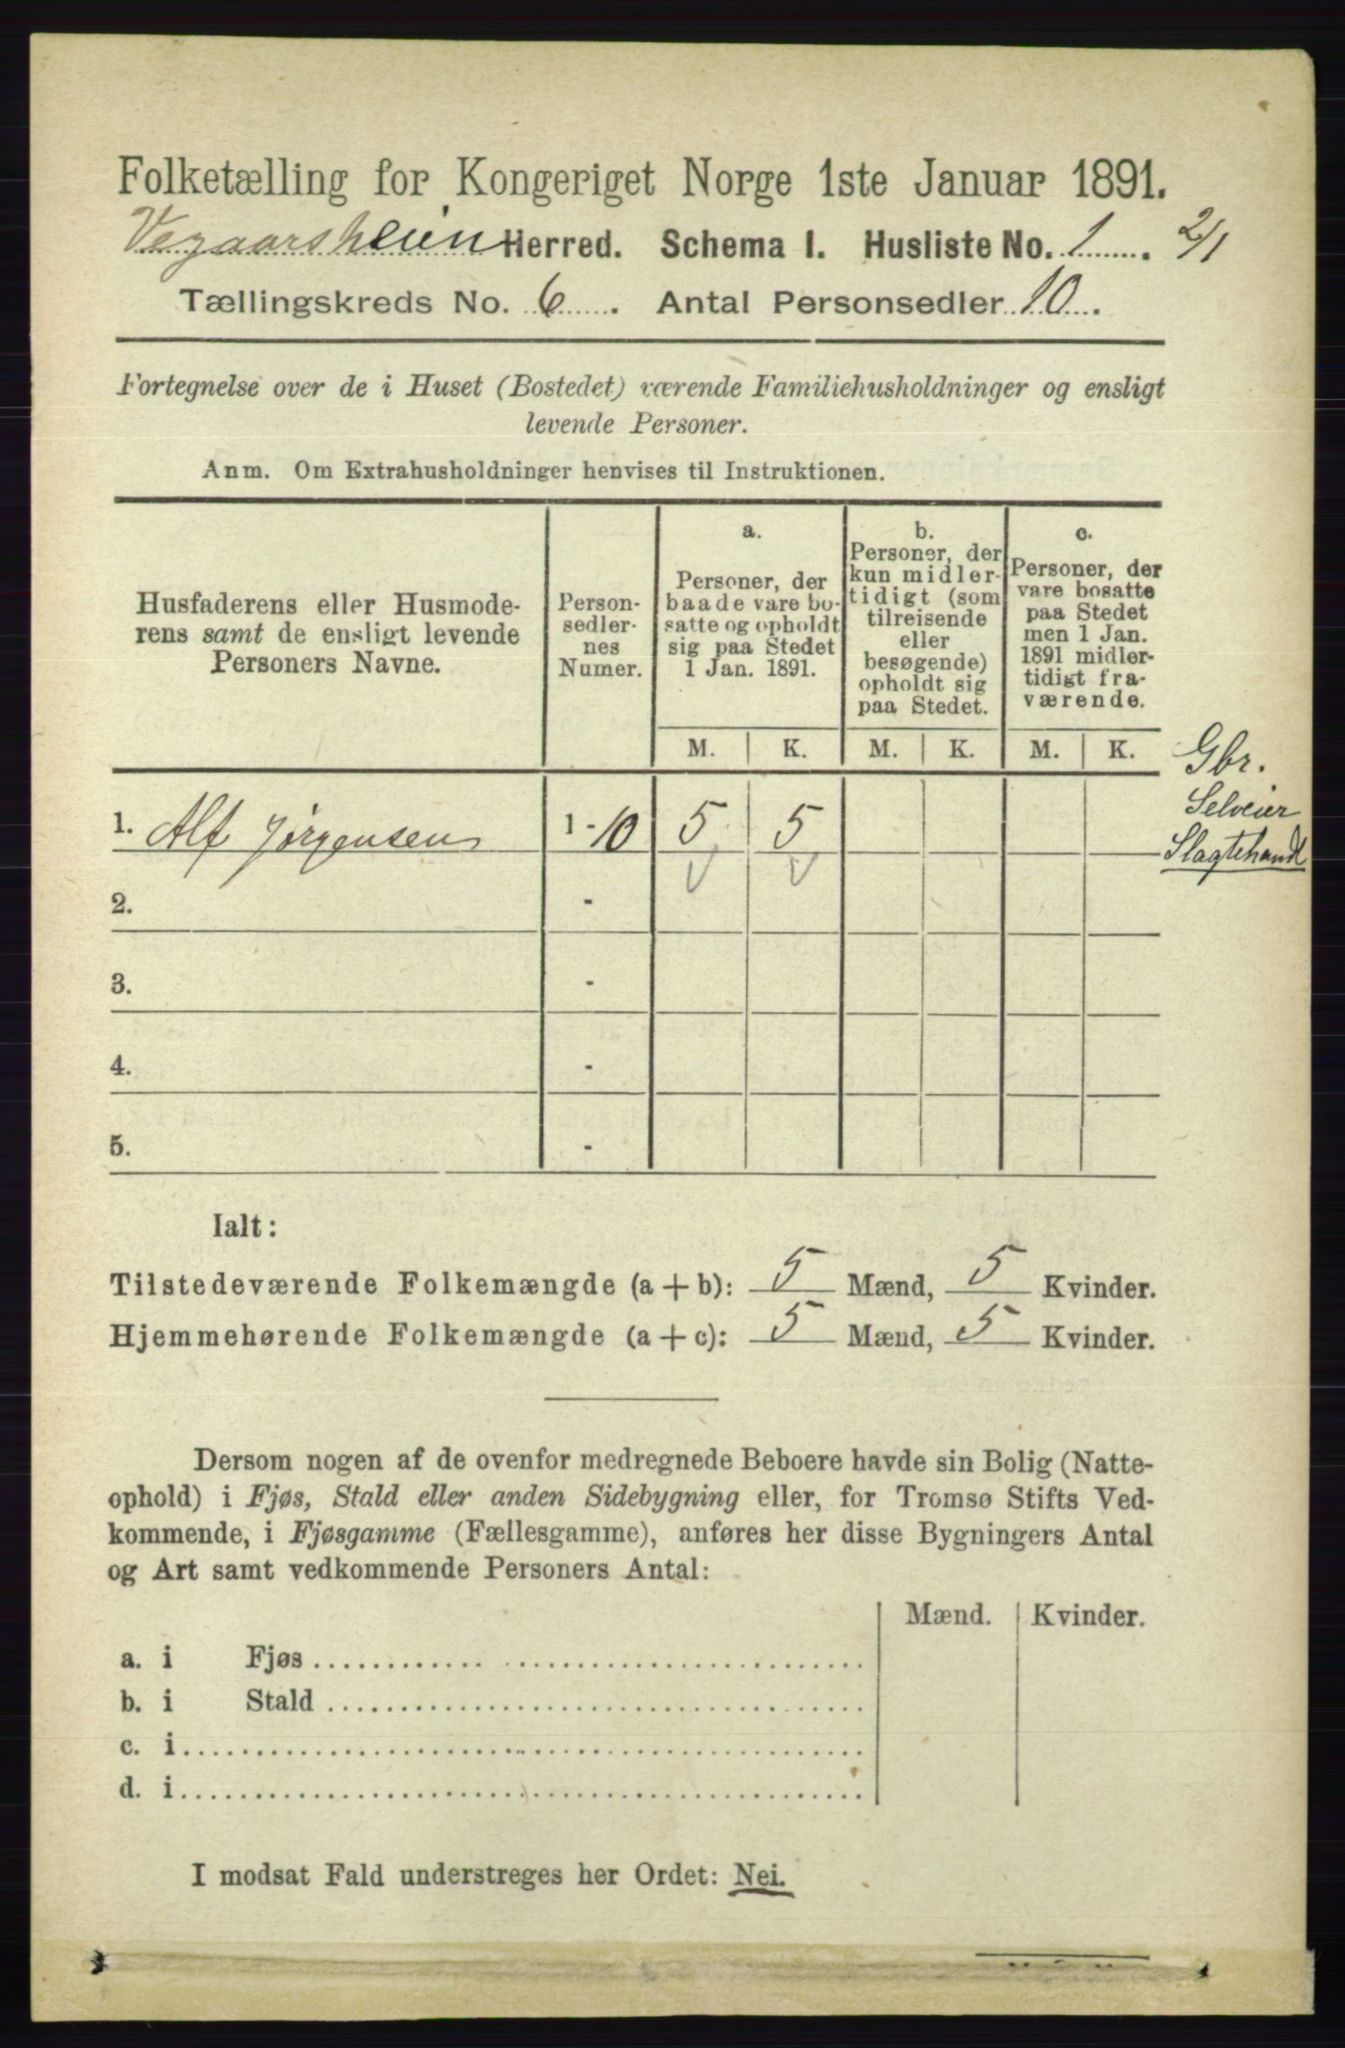 Folketælling for Kongeriget Norge 1ste Januar 1891.
Vegaarsheien Herred. Schema I. Husliste No. 1. 2/1
Tællingskreds No. 6. Antal Personsedler 10.
Fortegnelse over de i Huset (Bostedet) værende Familiehusholdninger og ensligt
levende Personer.
Anm. Om Extrahusholdninger henvises til Instruktionen.
Husfaderens eller Husmode-
rens samt de ensligt levende
Personers Navne.
Person-
sedler-
nes
Numer.
a.
Personer, der
baade vare bo-
satte og opholdt
sig paa Stedet
1 Jan. 1891.
b.
Personer, der
kun midler-
tidigt (som
tilreisende
eller
besøgende)
opholdt sig
paa Stedet.
c.
Personer, der
vare bosatte
paa Stedet
men 1 Jan.
1891 midler-
tidigt fra-
værende.
M. K. M. K. M. K.
Gbr.
Selveier
Slagtehandl
1. Alf Jørgensen 1 - 10 5 5
2. -
3. -
4. -
5. -
Ialt:
Tilstedeværende Folkemængde (a + b): 5 Mænd, 5 Kvinder.
Hjemmehørende Folkemængde (a + c): 5 Mænd, 5 Kvinder.
Dersom nogen af de ovenfor medregnede Beboere havde sin Bolig (Natte-
ophold) i Fjøs, Stald eller anden Sidebygning eller, for Tromsø Stifts Ved-
kommende, i Fjøsgamme (Fællesgamme), anføres her disse Bygningers Antal
og Art samt vedkommende Personers Antal:
Mænd. Kvinder.
a. i Fjøs
b. i Stald
c. i
d. i
I modsat Fald understreges her Ordet: Nei.